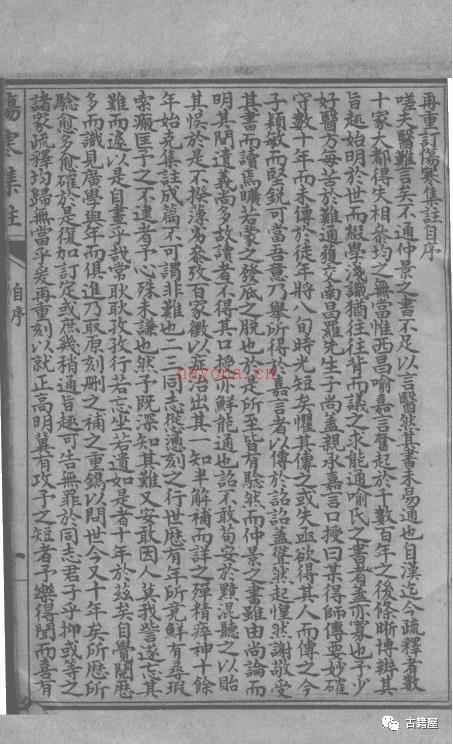 再重訂傷寒集註自序
嗟夫醫難言矣不通仲景之書不足以言醫然其書未易通也自漢迄今疏釋者數
十家大都得失相叅均之無當惟西昌喻嘉言奮起於千數百年之後條晰博辨其
旨趣始明於世而綴學淺識猶往往背而議之求能通喻氏之書者蓋亦寡也予少
好醫方每苦於難通獲交南昌羅先生子尚盡親承嘉言口授曰某得師傳要妙確
守數十年而未傳於徒年將八旬時光短矣懼其傳之或失亟欲得其人而傳之今
子穎敏而堅銳可當吾意乃舉所得於嘉言者以傳於詔詔蓋聳然起惶然謝敬受
其書而讀焉曠若蒙之發底之脫也於是所至皆有驗然而仲景之書雖由尚論而
明其間遺義尚多故讀者不得其口授亦鮮能通也詔不敢苟安於黯混聽之以貽
其悞於是不揆薄劣叅攷百家徵以症治出其一知半解補而詳之殫精瘁神十餘
年始克集註成篇不可謂非難也二三同志慫慂刻之行世歷有年所竟鮮有尋瑕
索瘢匡予之不逮者予心殊未謙也然予既深知其難又安敢因人莫我訾遂忘其
難而遽以是自畫乎哉常耿耿孜孜行若忘坐若遺如是者十年於茲矣自覺閱歷
多而識見廣學與年而俱進乃取原刻刪之補之重鐫以問世今又十年矣所歷所
驗愈多愈確於是復加訂定或庶幾稍通旨趣可告無罪於同志君子乎抑或等之
諸家疏釋均歸無當乎爰再重刻以就正高明冀有攻予之短者予樂得聞而喜有
傷寒集註
自序
nayona.cn
古籍屋